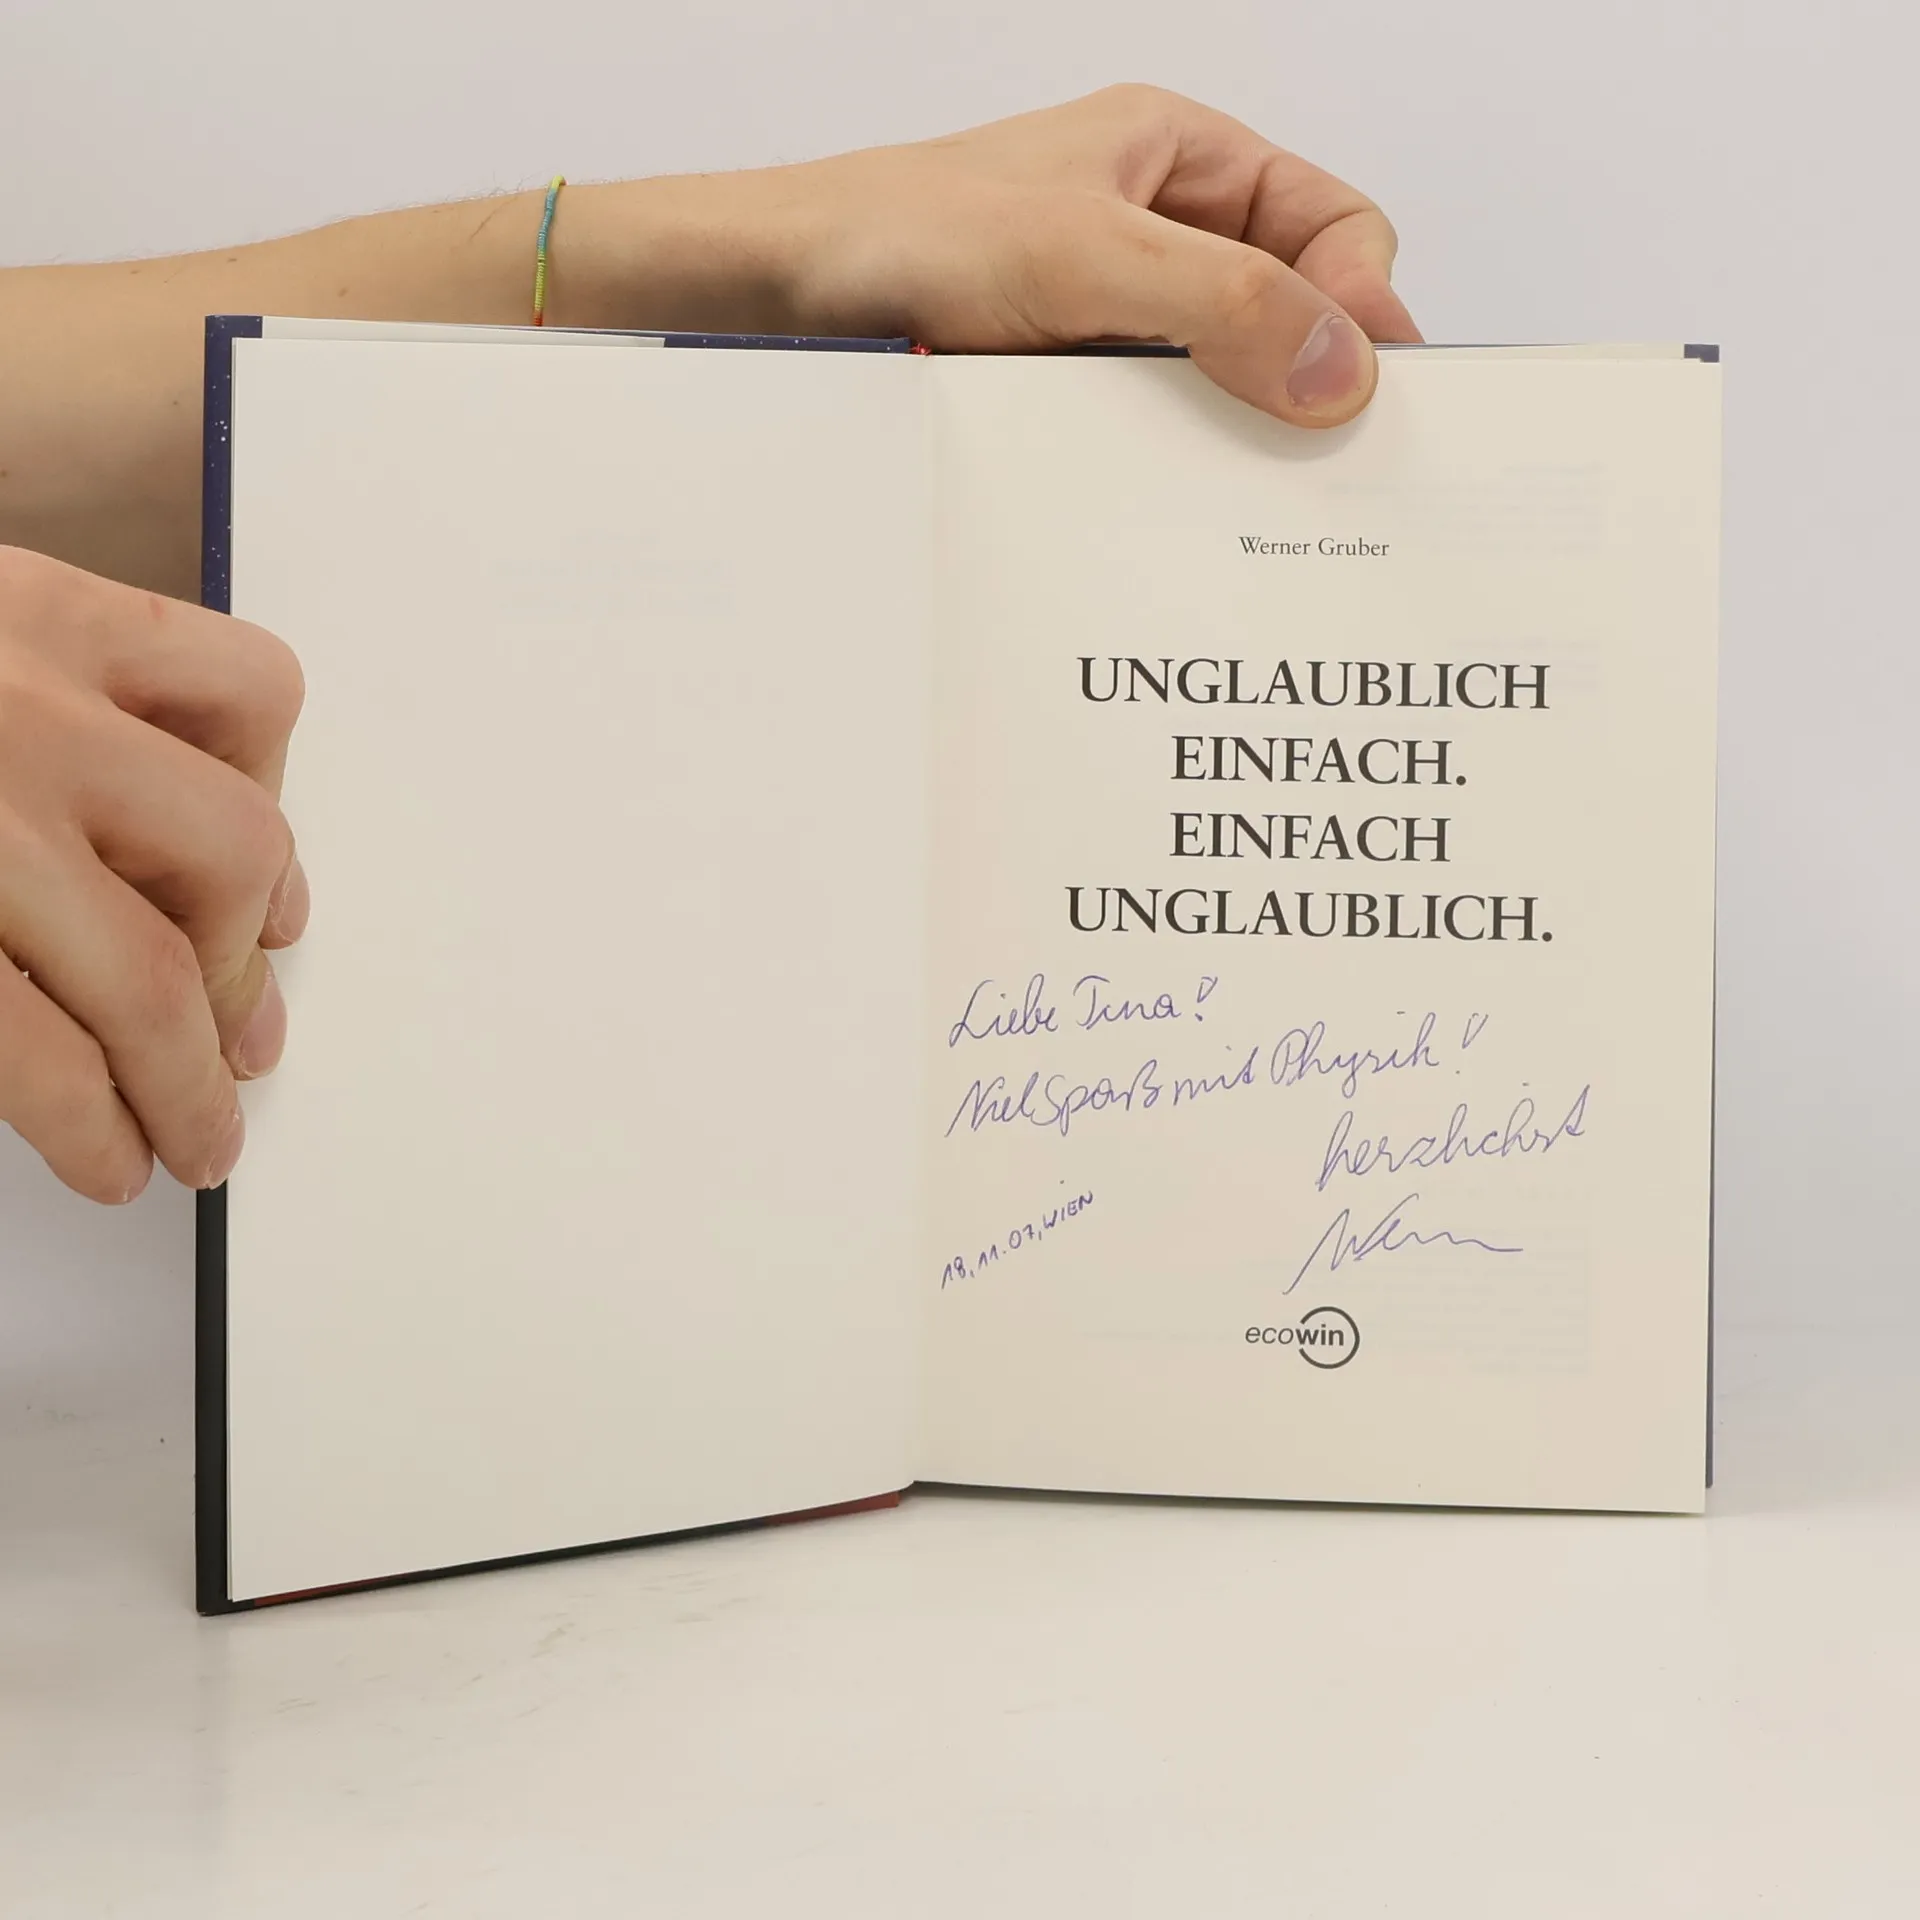 Werner Gruber
UNGLAUBLICH
EINFACH.
EINFACH
UNGLAUBLICH.
Liebe Tina!
Viel Spaß mit Physik!
herzlichst
18.11.07, WIEN
Werner
ecowin